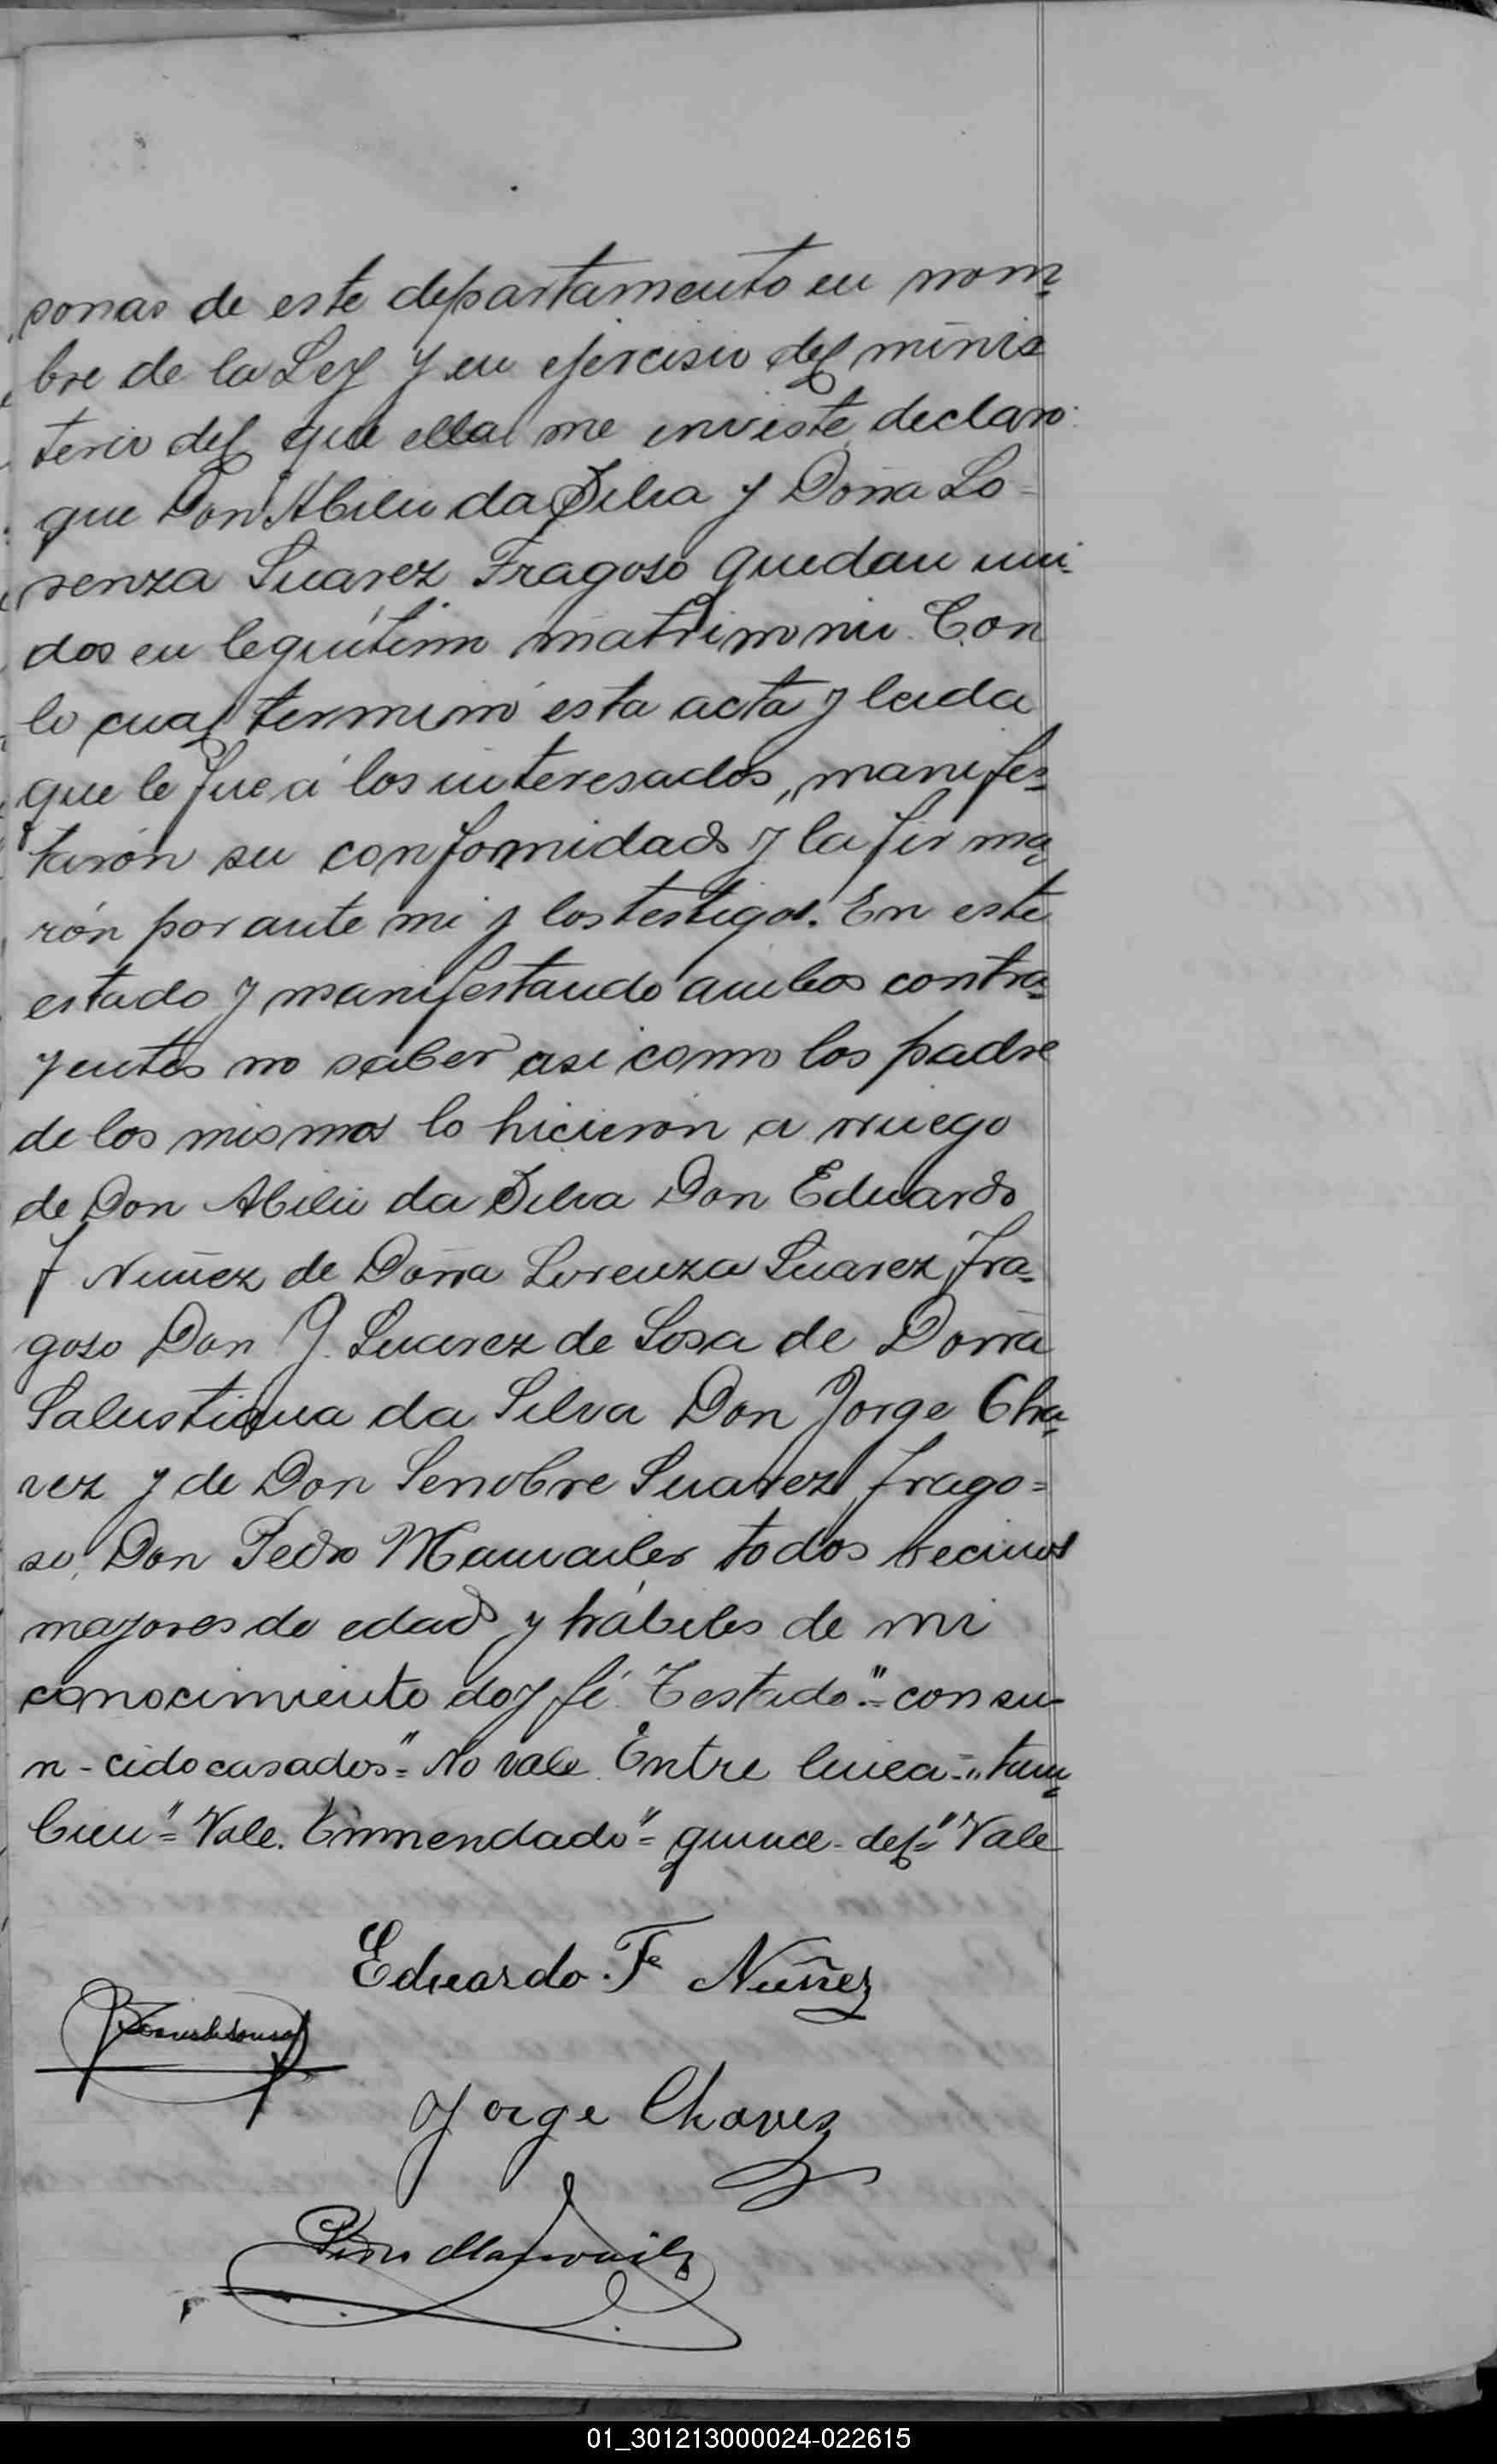 sonas de este departamento en nom=
bre de la Ley y en ejercisio del minis
terio del que ella me enviste declaro
que Don Abilio da Silva y Doña Lo-
renza Suarez Fragoso quedan uni-
dos en leguitimo matrimonio. Con
lo cual terminó esta acta y leida
que le fue á los interesados, manifes=
tarón su conformidad y la firma=
rón por ante mi y los testigos. En este
estado y manifestando ambos contra=
yentes no saber asi como los padre
de los mismos lo hicierón a rruego
de Don Abilio da Silva Don Eduardo
F Nuñez de Doña Lorenza Suarez Fra=
goso Don J. Suarez de Sosa de Doña
Salustiana da Silva Don Jorge Cha=
vez y de Don Senobre Suarez Frago=
so, Don Pedro todos vecinos
mayores de edad y hábiles de mi
conocimiento doy fé. Testado "=con su-
n-cido casados"= No vale. Entre linea="tam=
bien"= Vale. Enmendado "= quince-del=" Vale
Eduardo. F. Nuñez
Jorge Chavez
Pedro
01_301213000024-022615